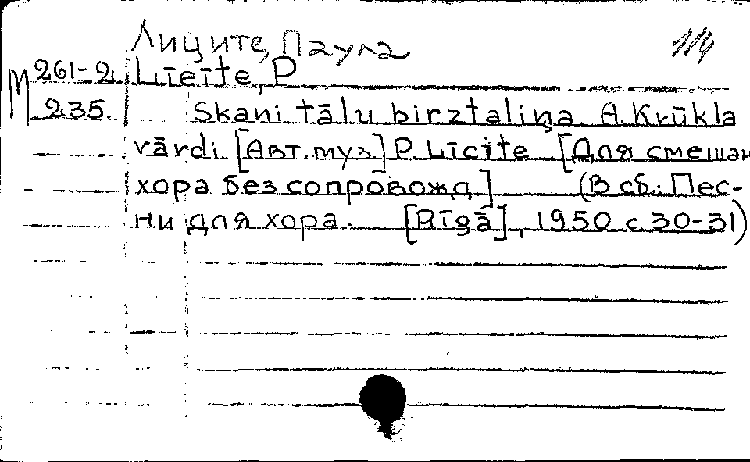 Лиците, Паула
М 261-2 Līcīte, P
235. Skani tālu birztaliņa. A. Krūkla
vārdi. [Авт. муз.] P. Līcīte [Для смешан
хора без сопровожд] (В сб.: Пес-
ни для хора. [Rīgā], 1950 с 30-31)